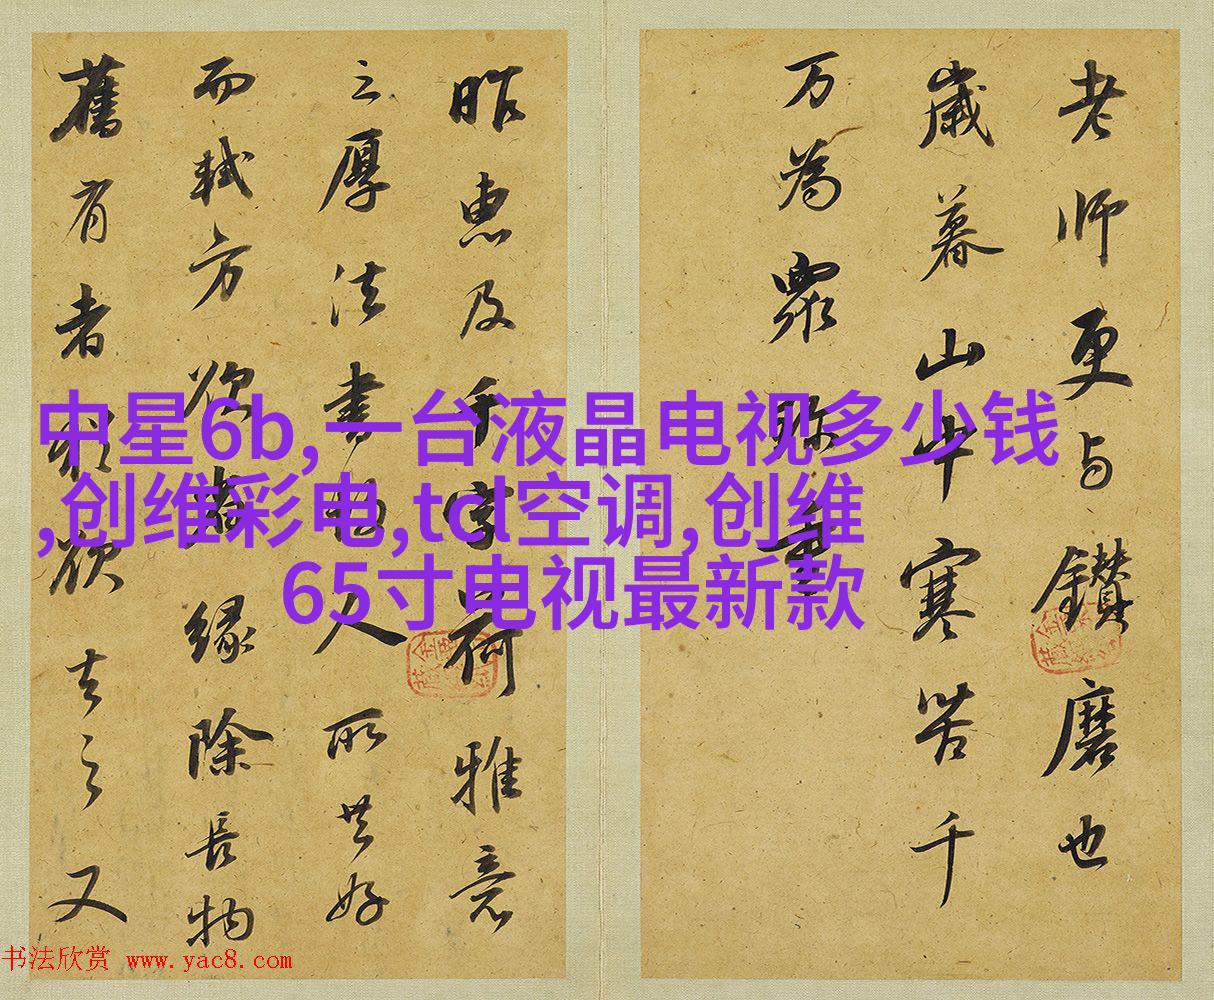 老师更与鑽磨也
歲暮山中寒苦千
万為眾珍重
昨惠及千字荷雅意
之厚法書人所共好
而軾方欲緣除長物
舊有者猶欲去之又
中星6b,一台液晶电视多少钱
,创维彩电,tcl空调,创维
65寸电视最新款
书法欣赏 www.yac8.com